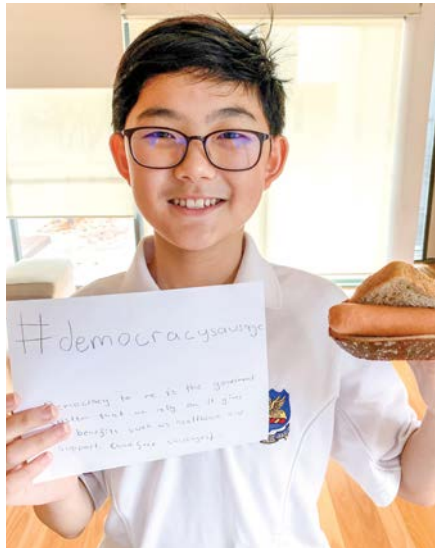 #democracysausage
Democracy to me is the goverment
system that we rely on it gives
benefits such as healthcare and
support. (and free sausages)